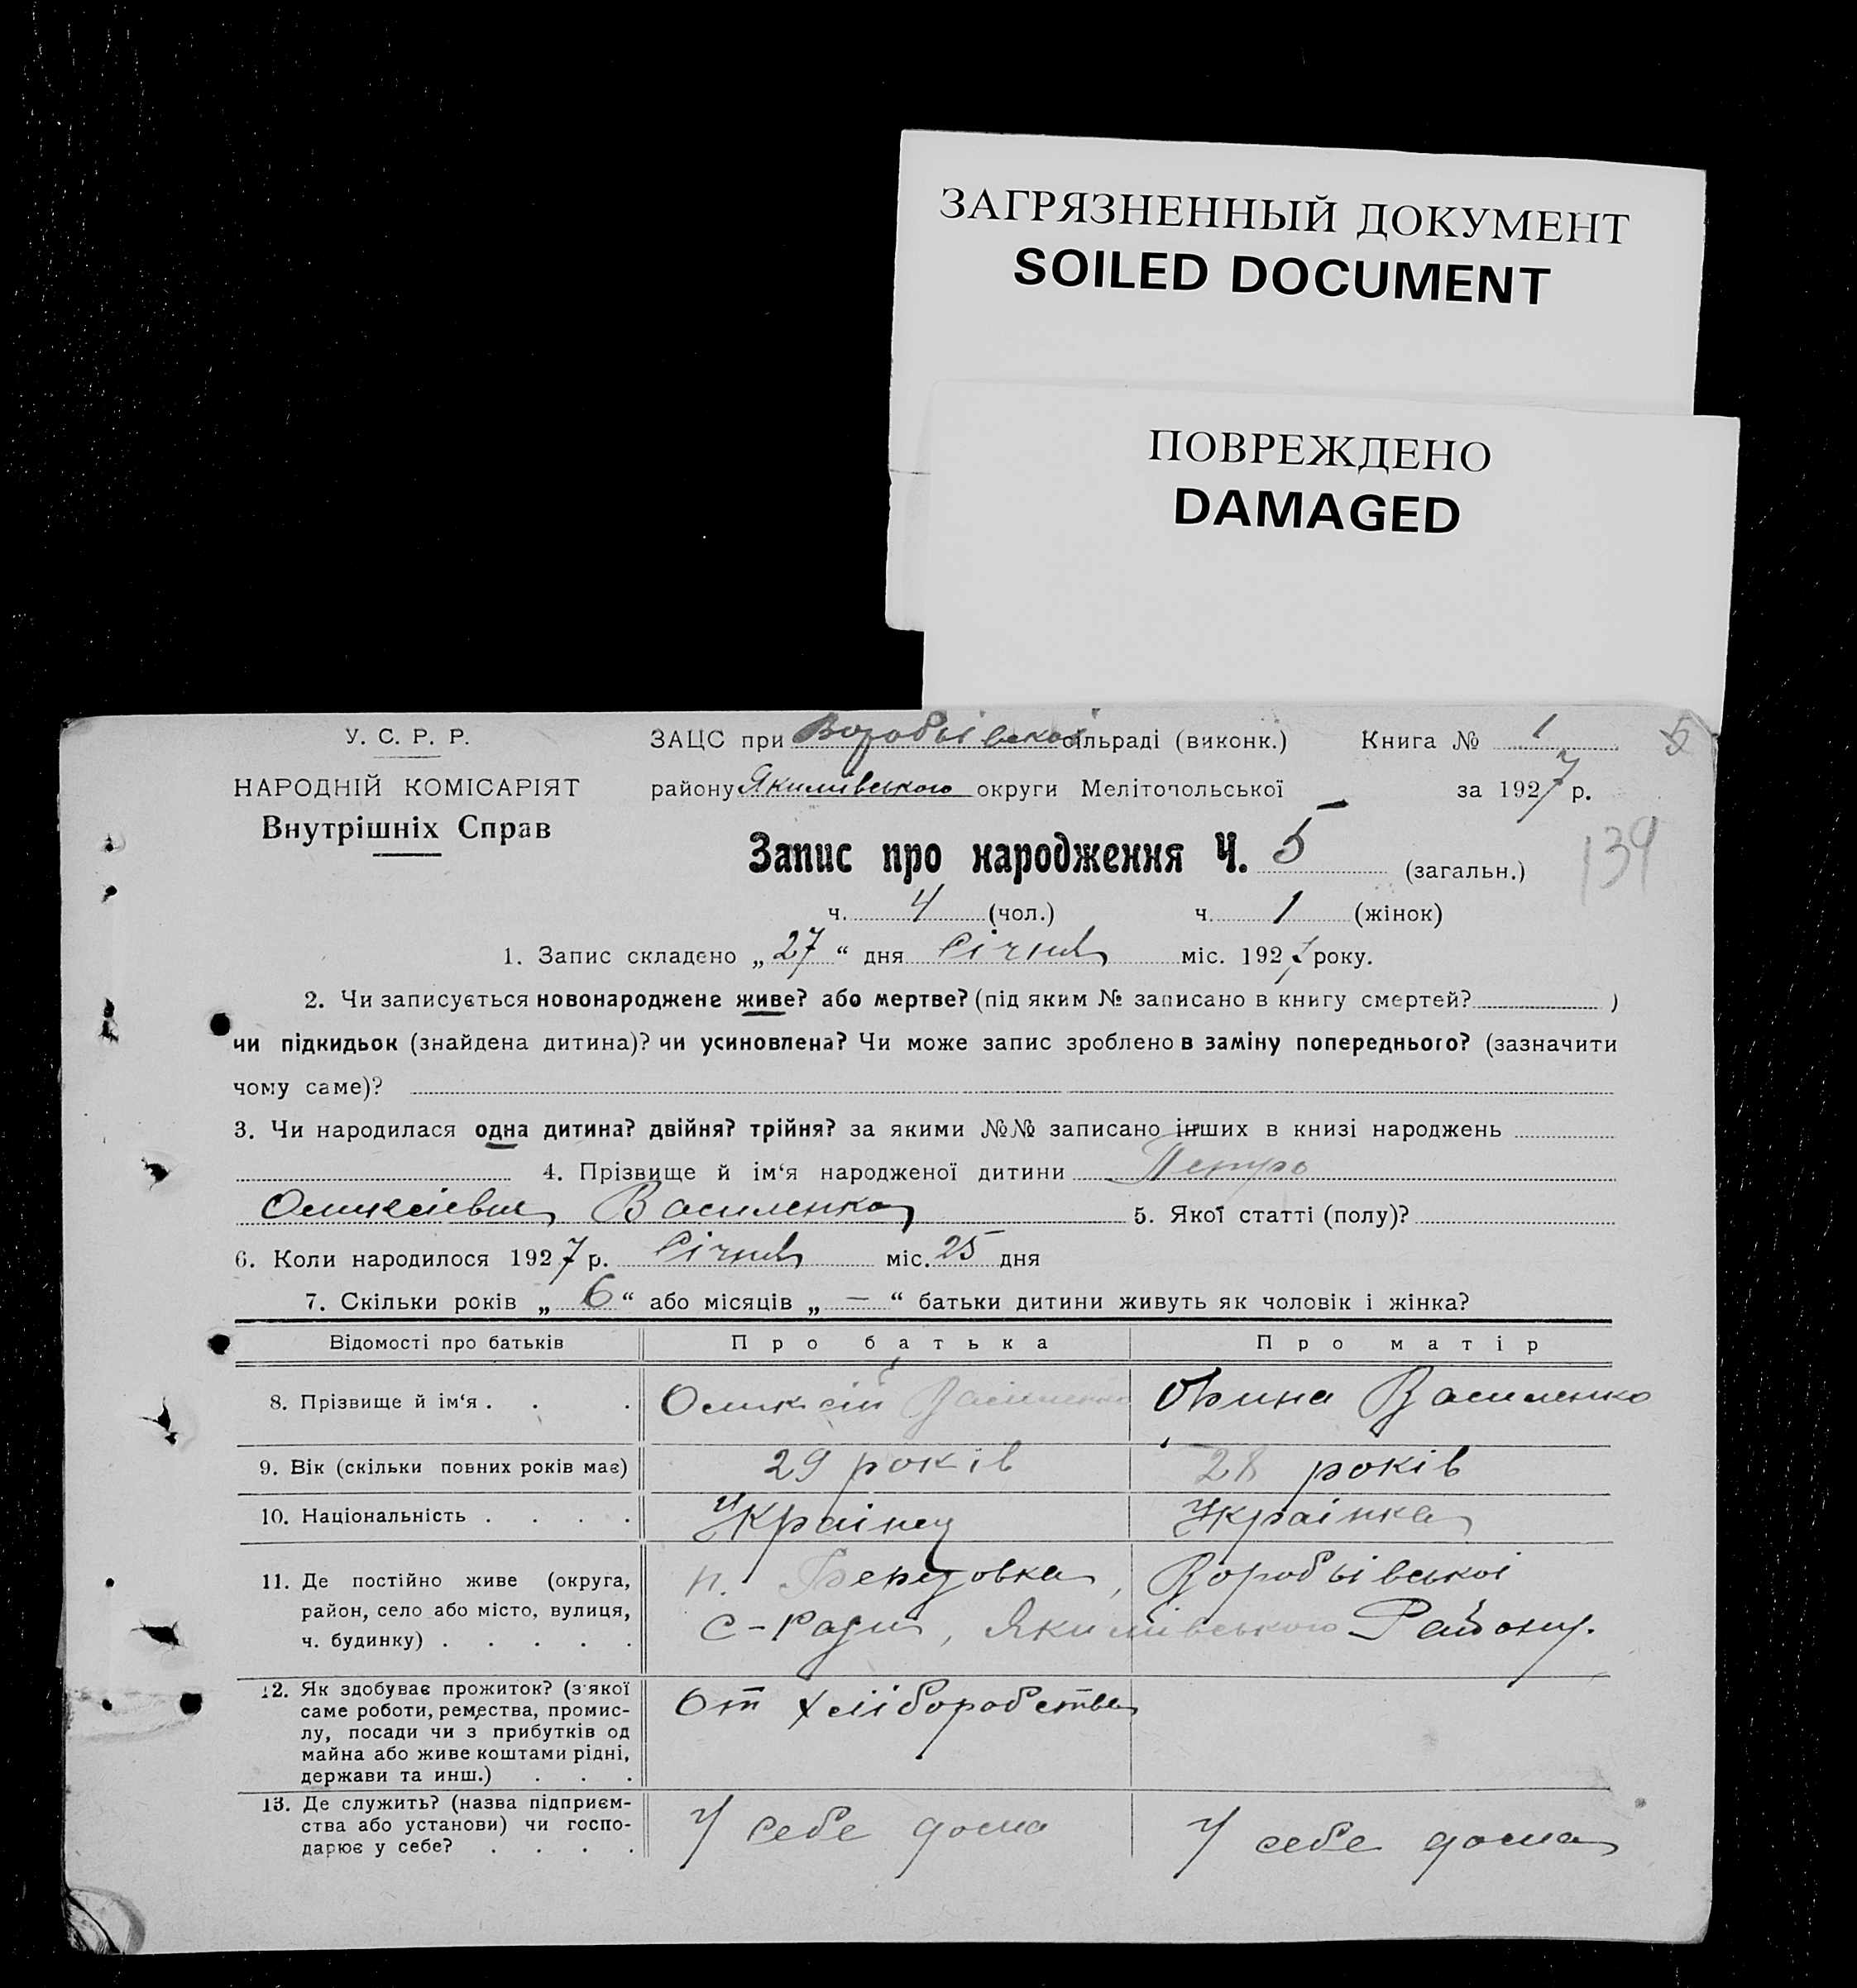 ЗАГРЯЗНЕННЫЙ ДОКУМЕНТ
SOILED DOCUMENT
ПОВРЕЖДЕНО
DAMAGED
У. С. Р. Р.
ЗАЦС при Воробьівської сільраді (виконк.) Книга № 1 5
НАРОДНІЙ КОМІСАРІЯТ
району Якимівського округи Мелітопольської за 1927 р.
Внутрішніх Справ
Запис про народження Ч. 5 (загальн.) 139
ч. 4 (чол.) ч. 1 (жінок)
1. Запис складено „27“ дня Січня міс. 1927 року.
2. Чи записується новонароджене живе? або мертве? (під яким № записано в книгу смертей? )
чи підкидьок (знайдена дитина)? чи усиновлена? Чи може запис зроблено в заміну попереднього? (зазначити
чому саме)?
3. Чи народилася одна дитина? двійня? трійня? за якими №№ записано інших в книзі народжень
4. Прізвище й ім‘я народженої дитини Петро
Василенко 5. Якої статті (полу)?
6. Коли народилося 1927 р. Січня міс. 25 дня
7. Скільки років „6“ або місяців „—“ батьки дитини живуть як чоловік і жінка?
Відомості про батьків Про батька Про матір
8. Прізвище й ім‘я . . . Оликсій Василенко Орина Василенко
9. Вік (скільки повних років має) 29 років 28 років
10. Національність . . . . Украінец Украінка
11. Де постійно живе (округа,
район, село або місто, вулиця,
ч. будинку) . . . . .
п. Воробьівської
С-Ради, Якимівського Району.
12. Як здобуває прожиток? (з'якої
саме роботи, ремества, промис-
лу, посади чи з прибутків од
майна або живе коштами рідні,
держави та инш.) . . .
От хліборобства
13. Де служить? (назва підприєм-
ства або установи) чи госпо-
дарює у себе? . . . .
У себе дома У себе дома